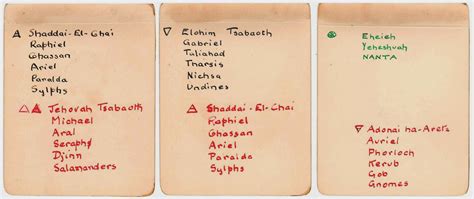 Shaddai-El-Chai
Raphiel
Ghassan
Ariel
Paralda
Sylphs
Jehovah Tsabaoth
Michael
Aral
Seraph
Djinn
Salamanders
Elohim Tsabaoth
Gabriel
Tuliahad
Tharsis
Nichsa
Undines
Shaddai-El-Chai
Raphiel
Ghassan
Ariel
Paralda
Sylphs
Eheieh
Yeheshuah
NANTA
Adonai ha-Arets
Auriel
Phorloch
Kerub
Gob
Gnomes